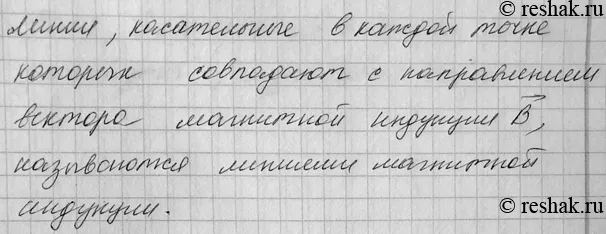 reshak.ru
линии, касательные в каждой точке
которых совпадают с направлением
вектора магнитной индукции B⃗,
называются линиями магнитной
индукции.
reshak.ru